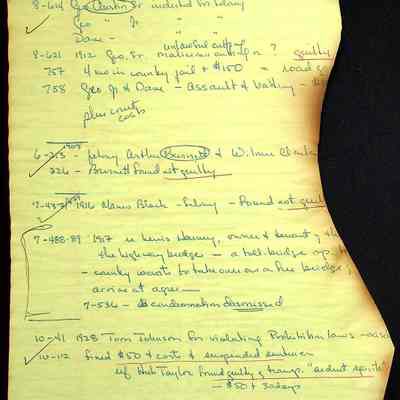 8-614 Geo. Austin Sr indicted for felony
Geo " Jr " "
Dave - " "
unlawful cutting
8-621 1912 Geo. Sr malicious cutting or ? guilty
757 4 mo in county jail + $150 = road g
758 Geo Jr & Dave - Assault & Battery -
plus court
costs
1909
6-213 - felony Arthur Burnett & Wilmer
226 - Burnett found not guilty
1916 - felony - Found not guil
7-488-89 1917 Lewis owner & tenant of the
the highway bridge - a toll-bridge op
- county wants to take over as a free bridge,
arrive at agree—
7-536 - condemnation dismissed
10-41 1928 Tom Johnson for violating Prohibition laws -
10-112 fined $50 & costs & suspended sentence
of Hub Taylor found guilty of transp. "ardent spirits"
- $50 + 30 days